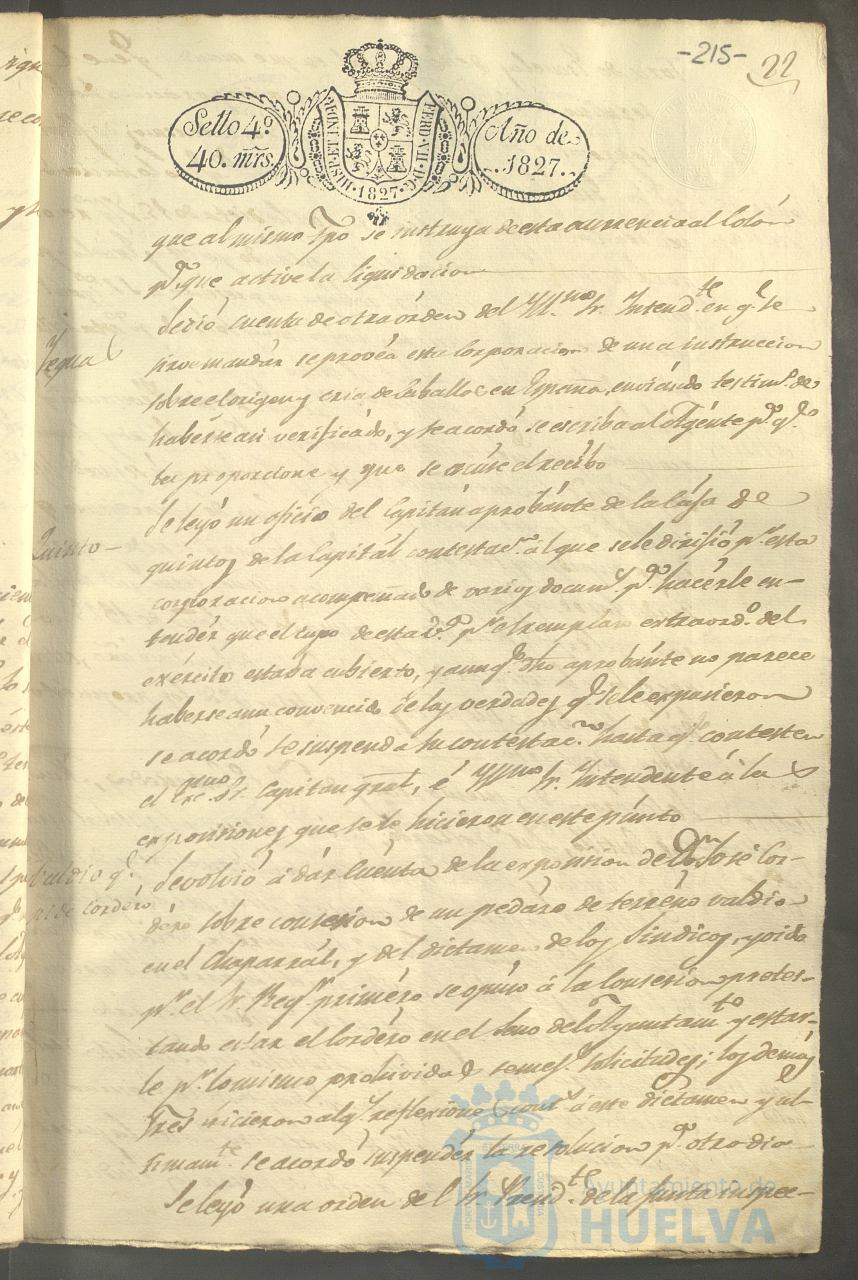 -215-
22
Sello 4º
40. mrs.
HISP. ET IND. R.
FERD. VII. D. G.
1827
Año de
1827.
que al mismo Tpo se instruya de esta ocurrencia al Colón
pª que active la liquidacion
Yeguas
Se dió cuenta de otra órden del Yllmo Sr. Intendte en q.e se
sirve mandár se provéa esta Corporacion de una instruccion
sobre el origen y cria de Caballos en España, enviándo testimº de
habérse asi verificádo, y se acordó se escriba al Agénte pª qe
la proporcione y que se acúse el recíbo
Quinto
Se leyó un oficio del Capitán aprobánte de la Cája de
quintos de la Capitál contestacn al que se le dirigió pr esta
corporacion acompañado de varios documtos pª hacérle en-
tendér que el cupo de esta Vª pª el remplazo extraordº del
exército estaba cubierto, y aunqe dho aprobánte no parece
haberse aun convencido de las verdades qe se le expusieron
se acordó se suspenda su contestacn hasta qe contesten
el Excmo Sr. Capitan gral, é Yllmo Sr. Intendente á las
exposiciones que se le hicieron en este púnto
Valdio qe
pide Cordéro
Se volvió á dár Cuénta de la exposicion de Dn José Cor-
déro sobre consesion de un pedázo de terréno valdio
en el Chaparrál, y del dictamen de los Sindicos, y oido
pr el Sr. Regr priméro se opúso á la Consesion protes-
tando estár el Cordéro en el Seno del Ayuntamto y estar-
le pr lo mismo prohivido semejtes solicitudes; los demás
Sres hicieron algs reflexiones á este dictamen y ul-
timamte se acordó suspendér la resolucion pª otro dia
Se leyó una orden del Sr. Presidte de la Junta inspec-
Ayuntamiento de
HUELVA